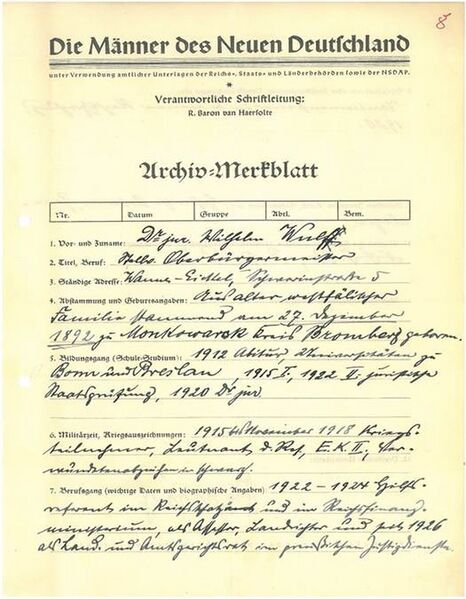 8
Die Männer des Neuen Deutschland
unter Verwendung amtlicher Unterlagen der Reichs-, Staats- und Länderbehörden sowie der NSDAP.
*
Verantwortliche Schriftleitung:
R. Baron van Haersolte
Archiv-Merkblatt
Nr. Datum Gruppe Abtl. Bem.
1. Vor- und Zuname: Dr jur. Wilhelm Wulff
2. Titel, Beruf: Stellv. Oberbürgermeister
3. Ständige Adresse: Wanne-Eickel, Schwerinstraße 5
4. Abstammung und Geburtsangaben: Aus alter westfälischer
Familie stammend am 27. Dezember
1892 zu Monkowarsk Kreis Bromberg geboren.
5. Bildungsgang (Schule-Studium): 1912 Abitur, Universitäten zu
Bonn und Breslau 1915 I, 1922 II. juristische
Staatsprüfung, 1920 Dr jur.
6. Militärzeit, Kriegsauszeichnungen: 1915 bis November 1918 Kriegs-
teilnehmer, Leutnant d. Res, E.K.II, Ver-
wundetenabzeichen in schwarz.
7. Berufsgang (wichtige Daten und biographische Angaben) 1922 – 1924 Hilfs-
referent im Reichsschatzamt und im Reichsfinanz-
ministerium, als Assessor, Landrichter und seit 1926
als Land- und Amtsgerichtsrat im preußischen Justizdienste.